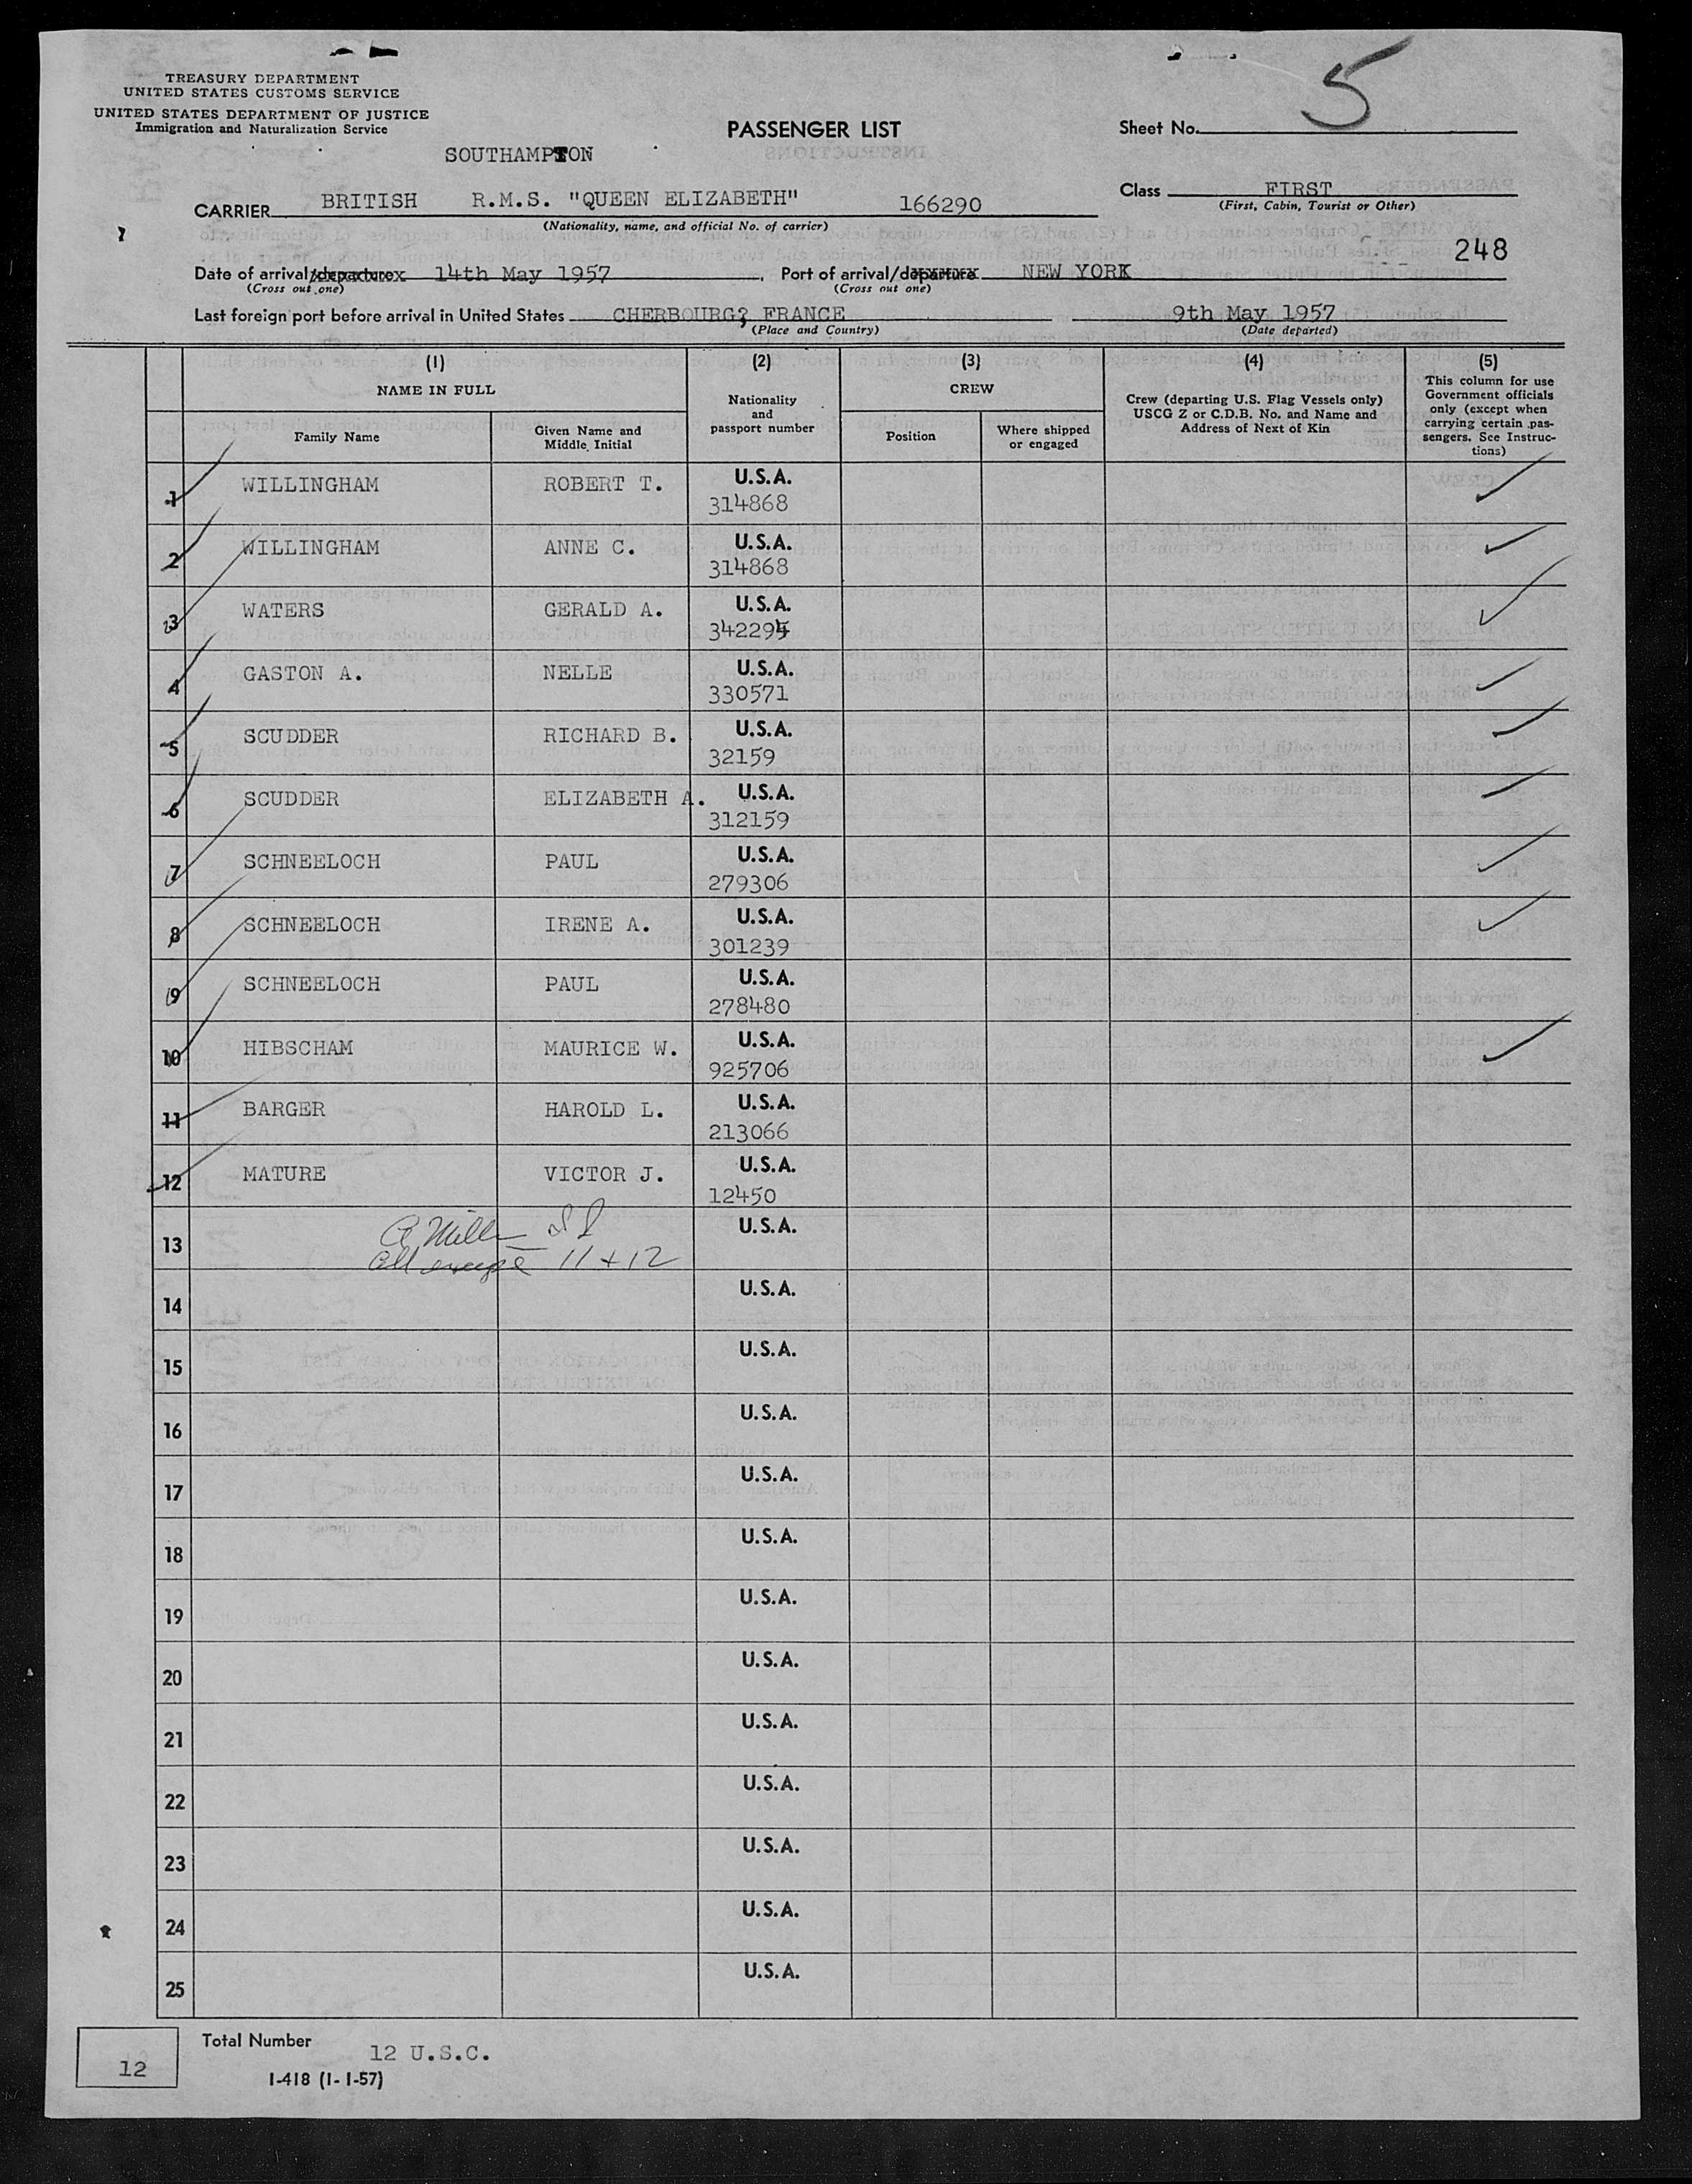 TREASURY DEPARTMENT
UNITED STATES CUSTOMS SERVICE
UNITED STATES DEPARTMENT OF JUSTICE
Immigration and Naturalization Service
PASSENGER LIST
Sheet No. 5
SOUTHAMPTON
Class FIRST
(First, Cabin, Tourist or Other)
CARRIER BRITISH R.M.S. "QUEEN ELIZABETH" 166290
(Nationality, name, and official No. of carrier)
248
Date of arrival/departure 14th May 1957 Port of arrival/departure NEW YORK
(Cross out one) (Cross out one)
Last foreign port before arrival in United States CHERBOURG? FRANCE 9th May 1957
(Place and Country) (Date departed)
(1) NAME IN FULL
Family Name
Given Name and Middle Initial
(2) Nationality and passport number
(3) CREW
Position
Where shipped or engaged
(4) Crew (departing U.S. Flag Vessels only) USCG Z or C.D.B. No. and Name and Address of Next of Kin
(5) This column for use Government officials only (except when carrying certain pas-sengers. See Instruc-tions)
1 WILLINGHAM ROBERT T. U.S.A. 314868
2 WILLINGHAM ANNE C. U.S.A. 314868
3 WATERS GERALD A. U.S.A. 342295
4 GASTON A. NELLE U.S.A. 330571
5 SCUDDER RICHARD B. U.S.A. 32159
6 SCUDDER ELIZABETH A. U.S.A. 312159
7 SCHNEELOCH PAUL U.S.A. 279306
8 SCHNEELOCH IRENE A. U.S.A. 301239
9 SCHNEELOCH PAUL U.S.A. 278480
10 HIBSCHAM MAURICE W. U.S.A. 925706
11 BARGER HAROLD L. U.S.A. 213066
12 MATURE VICTOR J. U.S.A. 12450
13 U.S.A.
All except 11 + 12
14 U.S.A.
15 U.S.A.
16 U.S.A.
17 U.S.A.
18 U.S.A.
19 U.S.A.
20 U.S.A.
21 U.S.A.
22 U.S.A.
23 U.S.A.
24 U.S.A.
25 U.S.A.
12
Total Number 12 U.S.C.
I-418 (1-1-57)